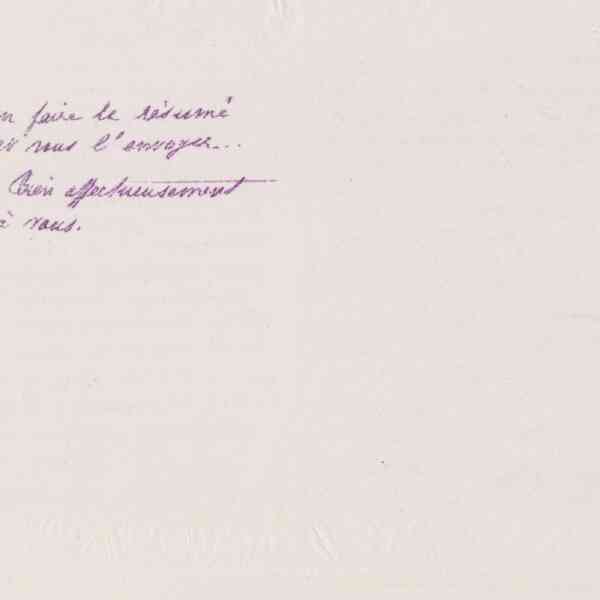 faire le résumé
vous l'envoyer...
Bien affectueusement
à vous.